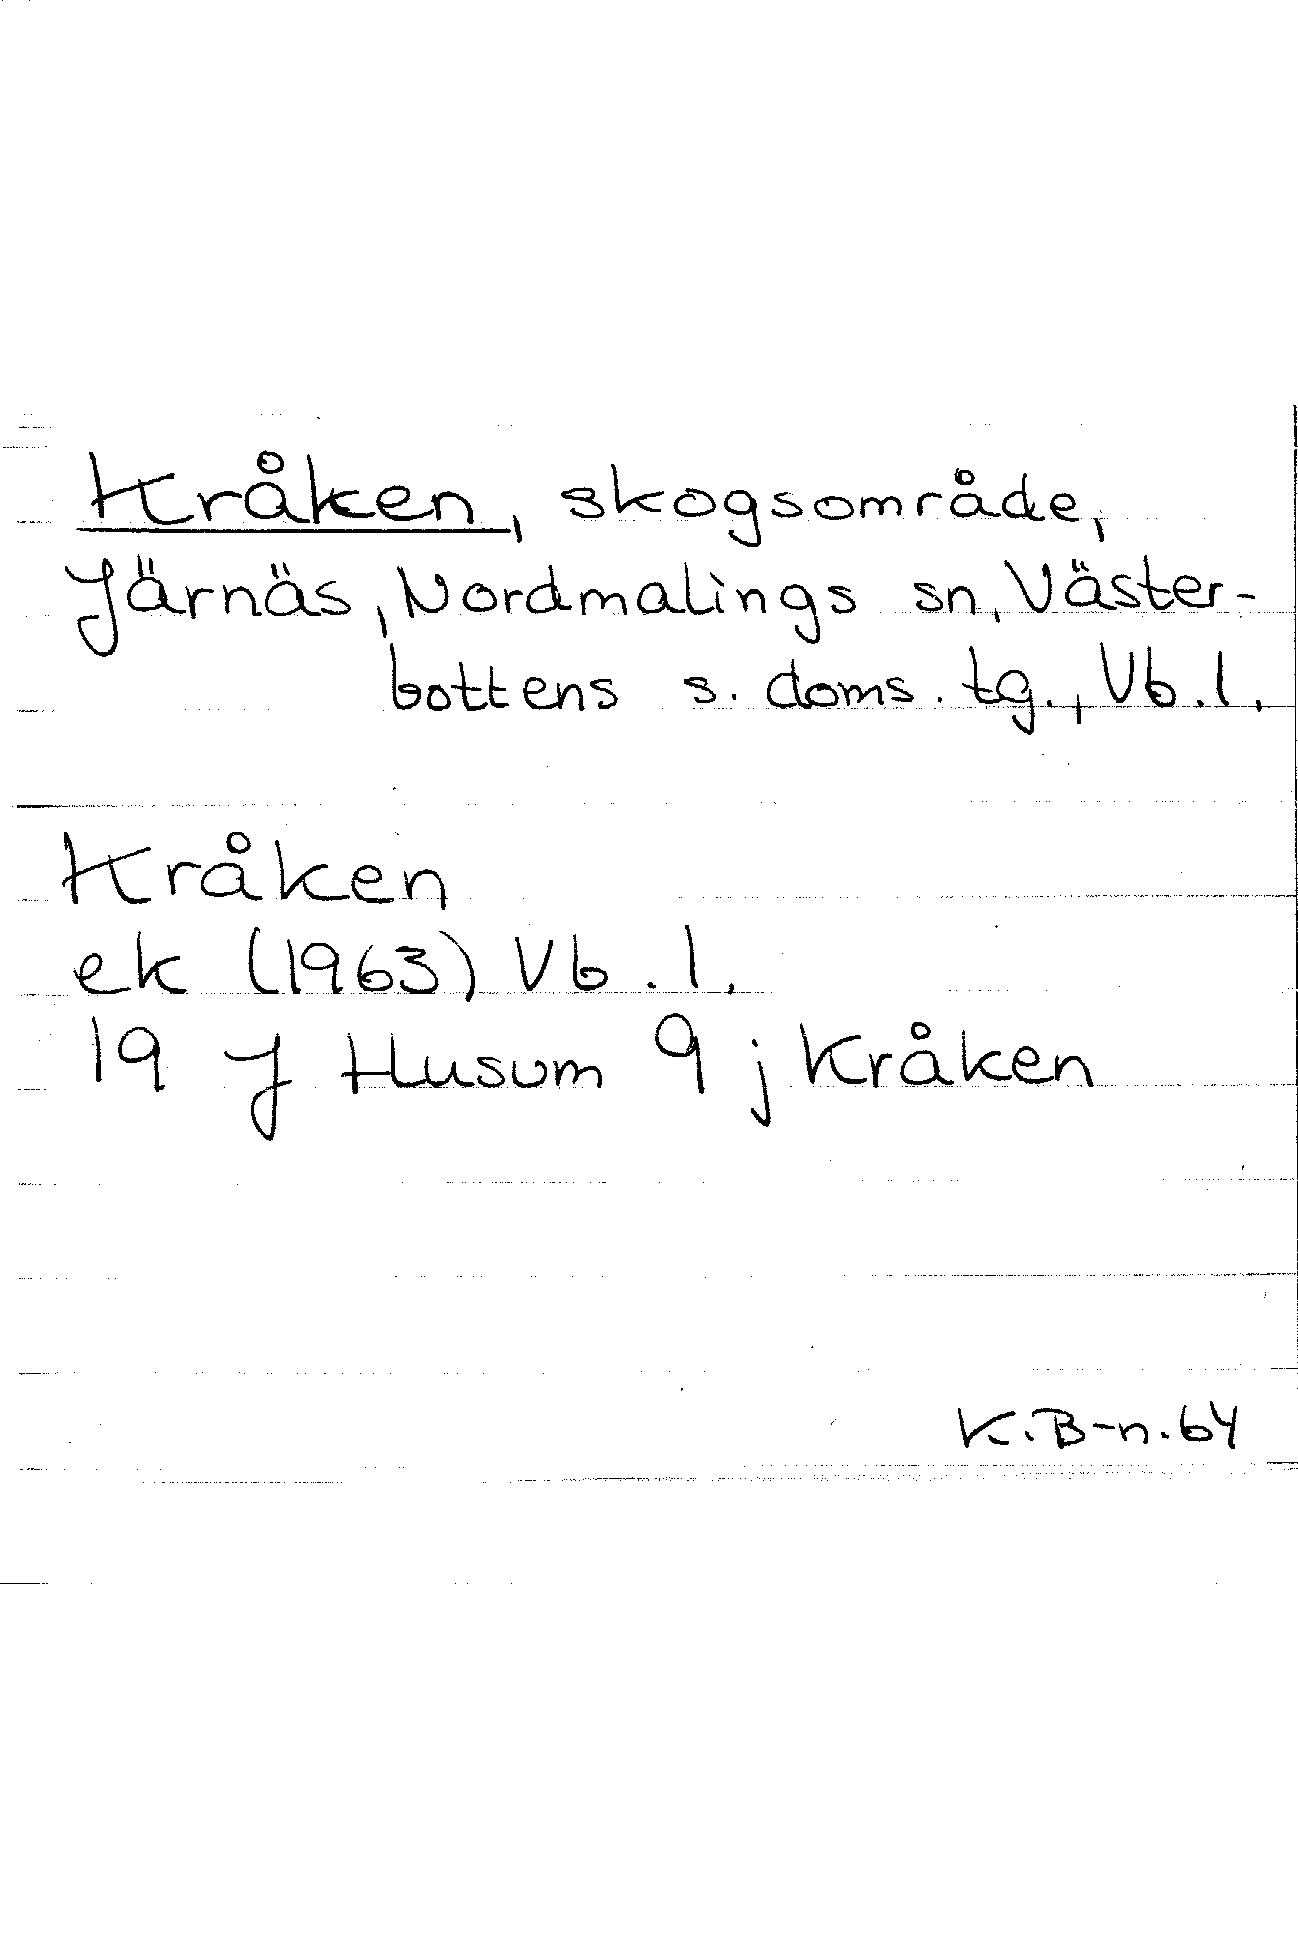 Kråken, skogsområde,
Järnäs, Nordmalings sn, Väster-
bottens s. doms. tg., Vb. l.
Kråken
ek (1963) Vb. l.
19 J Husum 9 j Kråken
K. B-n. 64